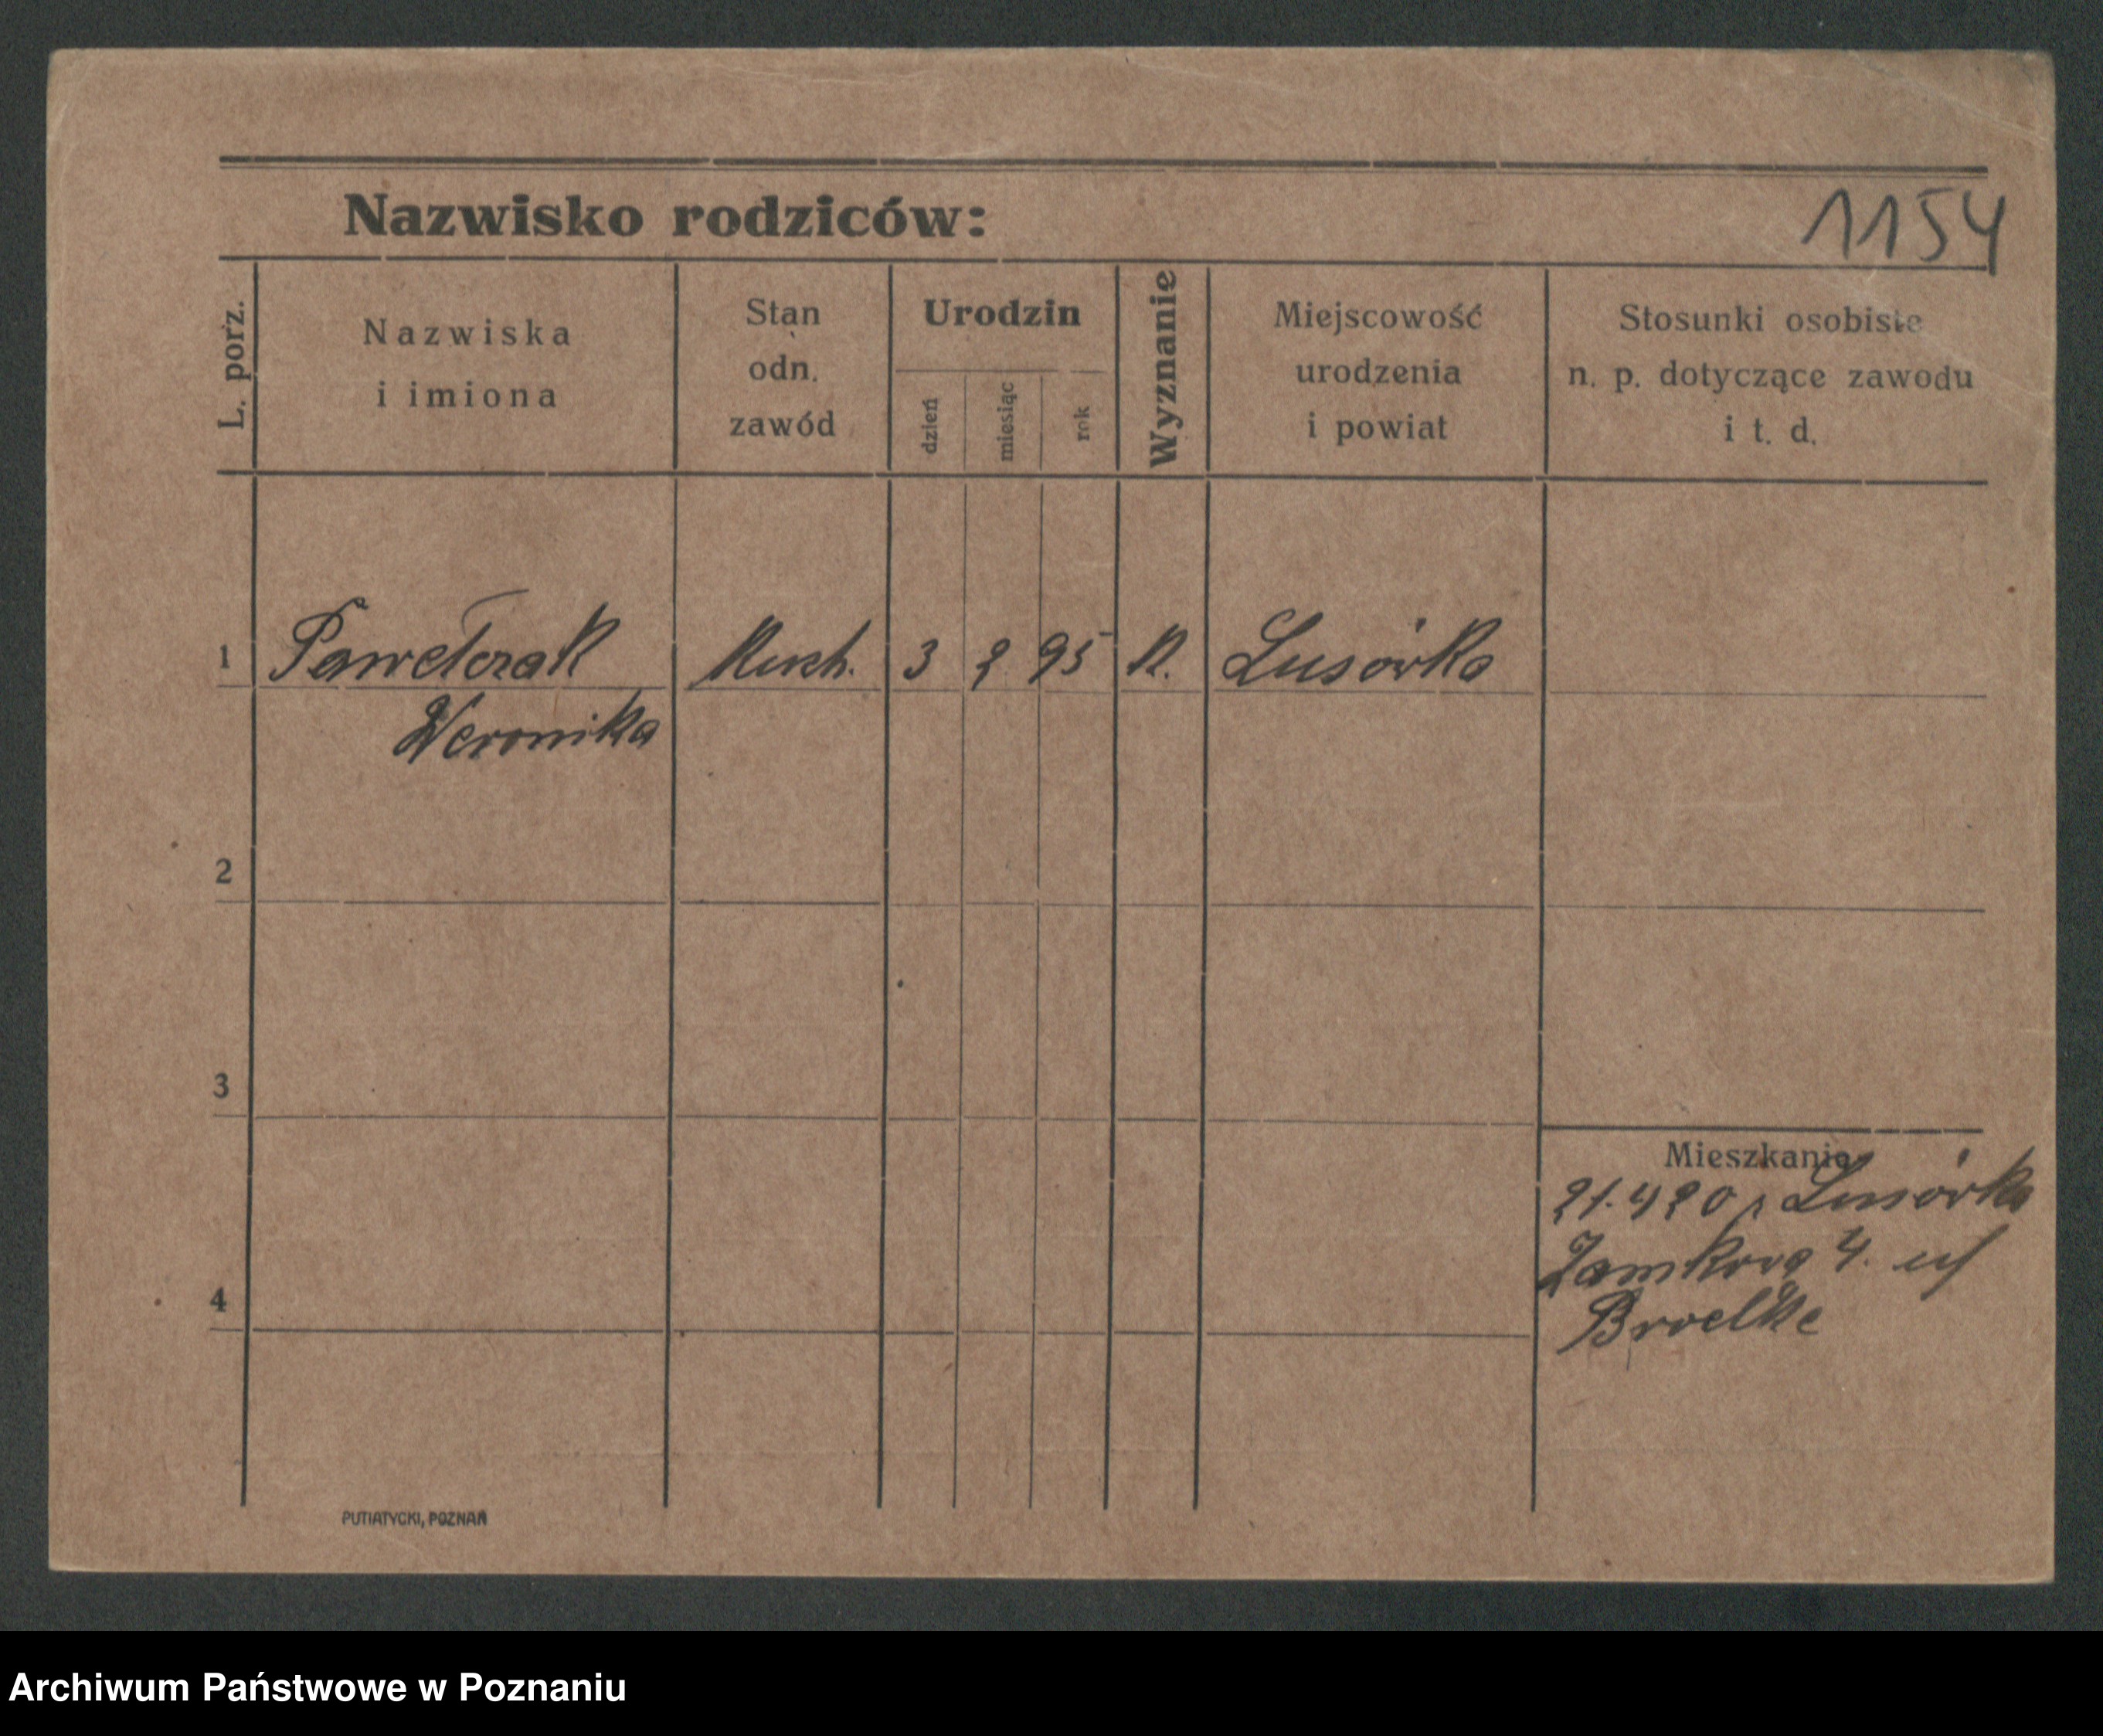 Nazwisko rodziców:
1154
L. porz.
Nazwiska
i imiona
Stan
odn.
zawód
Urodzin
dzień
miesiąc
rok
Wyznanie
Miejscowość
urodzenia
i powiat
Stosunki osobiste
n. p. dotyczące zawodu
i t. d.
1 Pawełczak Kuch. 3 2 95 K. Lusówko
Weronika
2
3
4
Mieszkanie
21.4 20 z Lusówka
Zamkowa 4. u/
Broelke
PUTIATYCKI, POZNAŃ
Archiwum Państwowe w Poznaniu